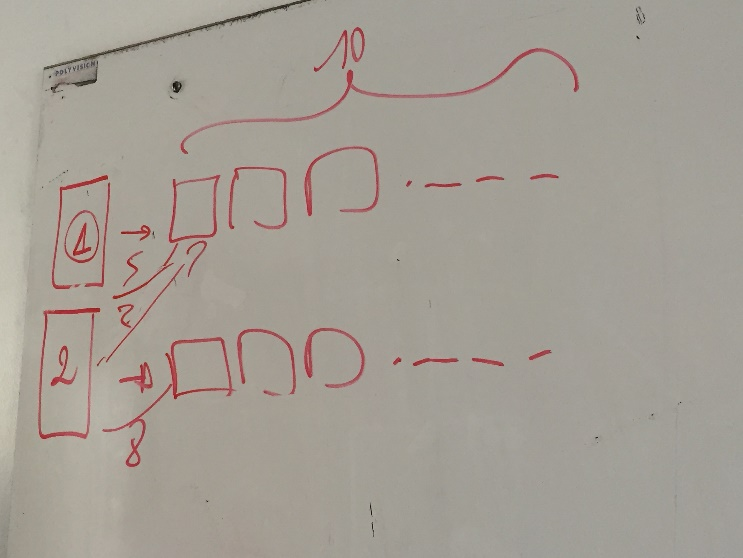 POLYVISION
10
1
5
7
2
2
8